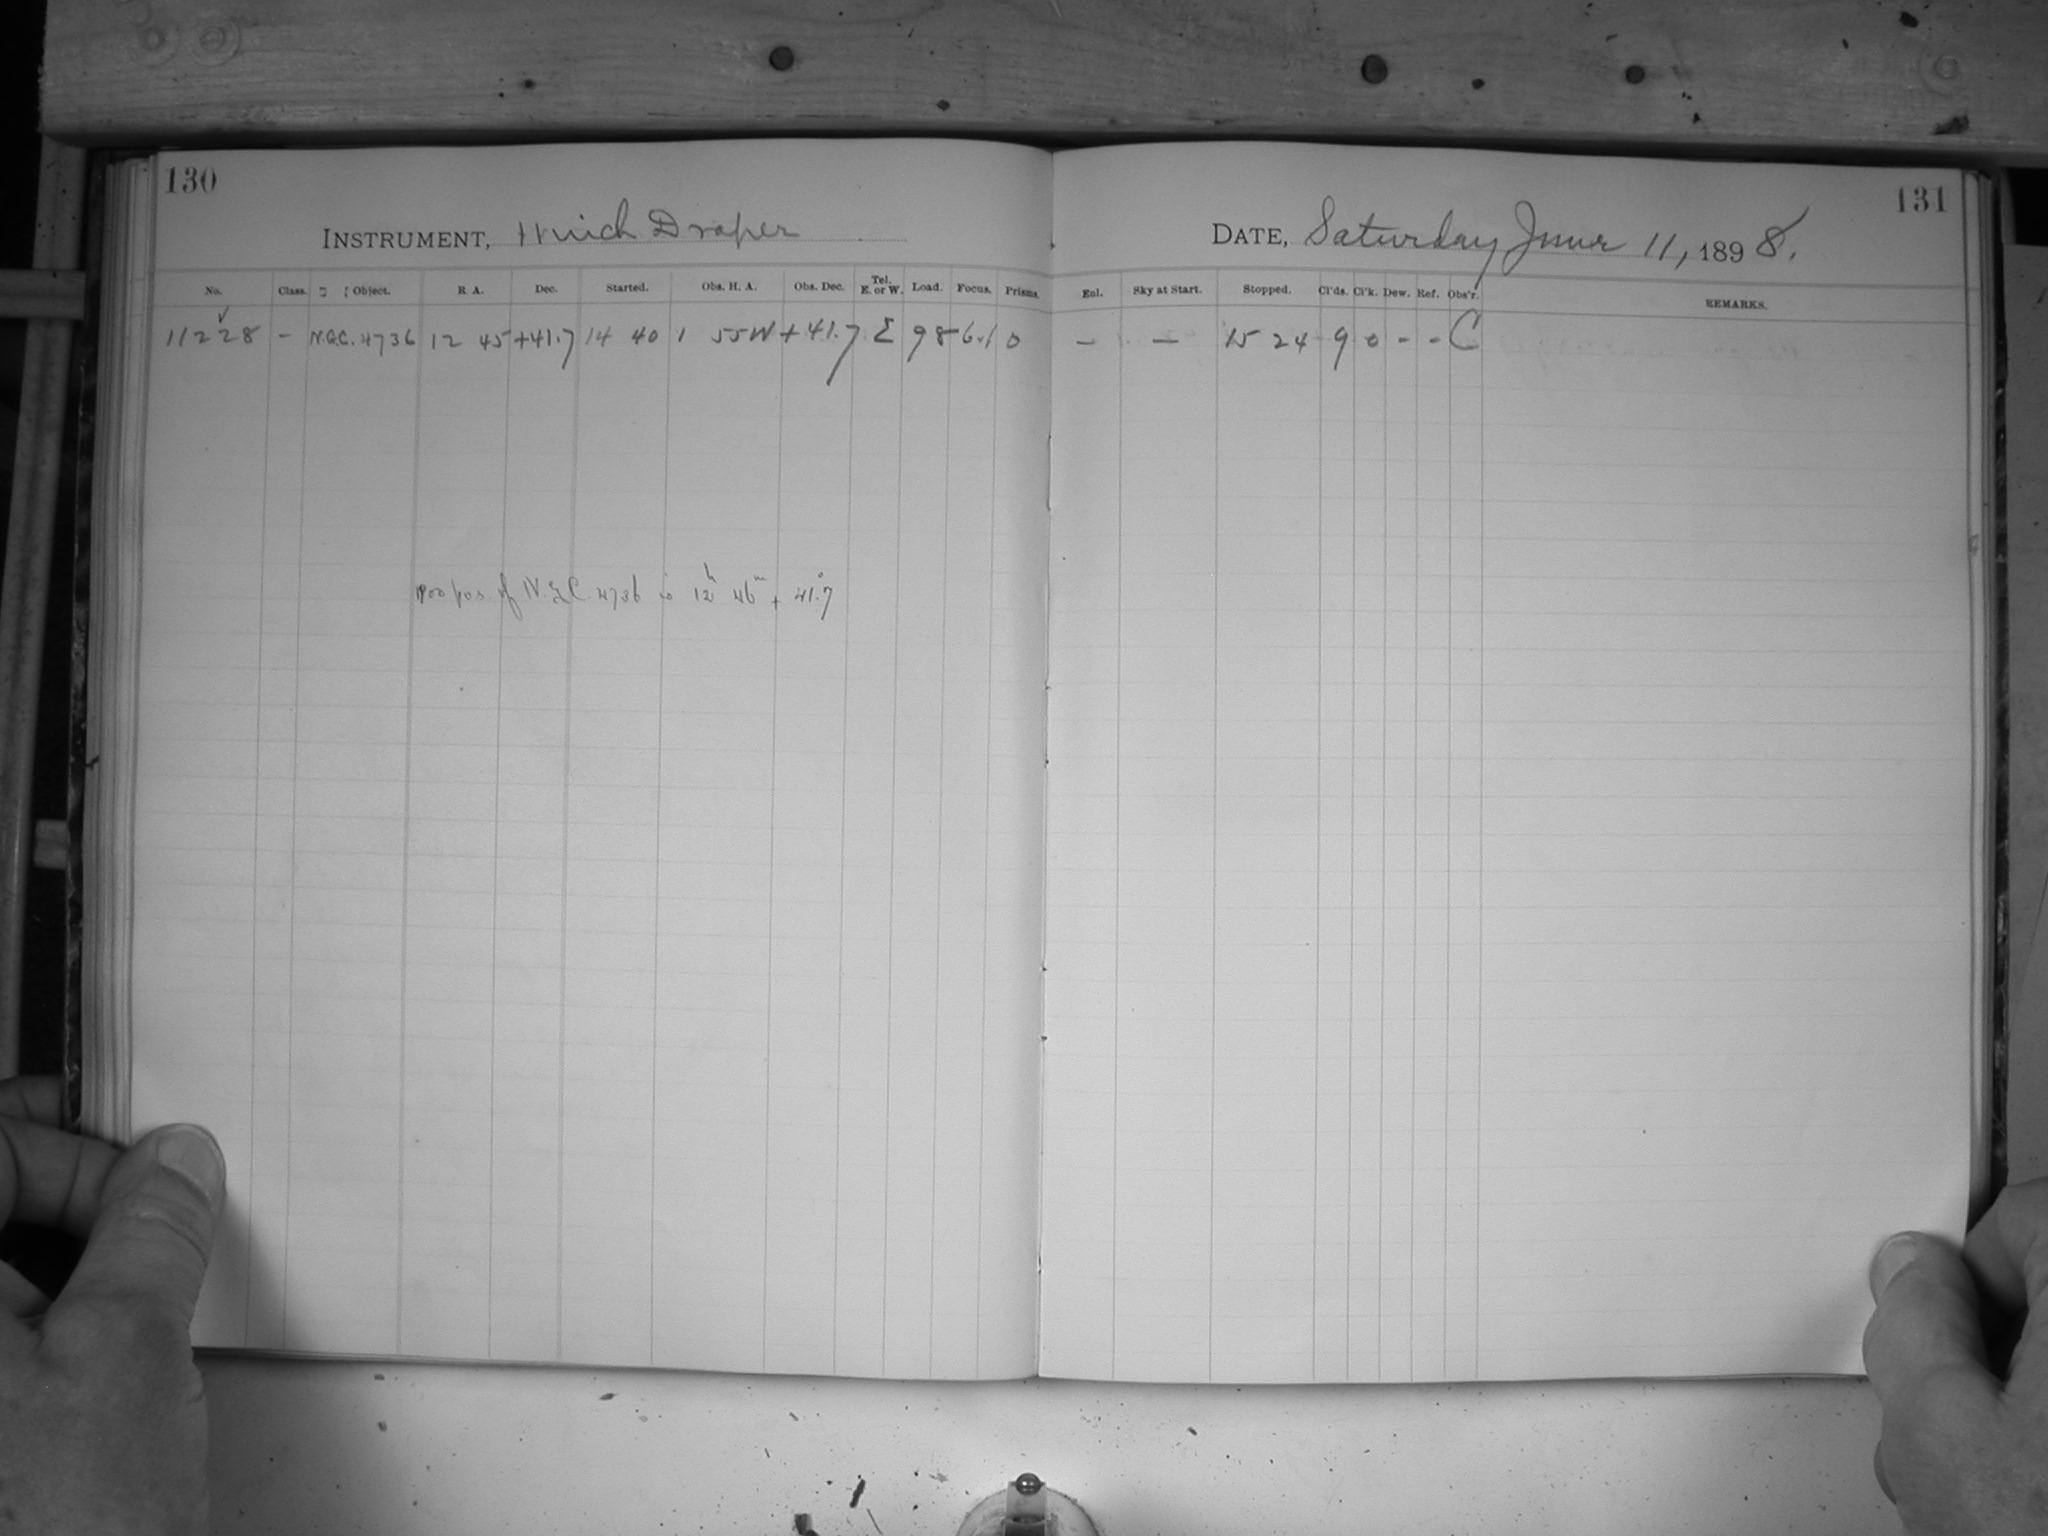 130
INSTRUMENT, 11 inch Draper
No. Class. Object. R. A. Dec. Started. Obs. H. A. Obs. Dec. Tel. E. or W. Load. Focus. Prisms.
11228 – N.G.C. 4736 12 45 +41.7 14 40 1 55W +41.7 E 98 6.1 0
pos. of N.G.C. 4736 is 12h 46m + 41°.7
131
DATE, Saturday June 11, 1898.
Enl. Sky at Start. Stopped. Cl'ds. Cl'k. Dew. Ref. Obs'r. REMARKS.
– – 15 24 9 0 - - C